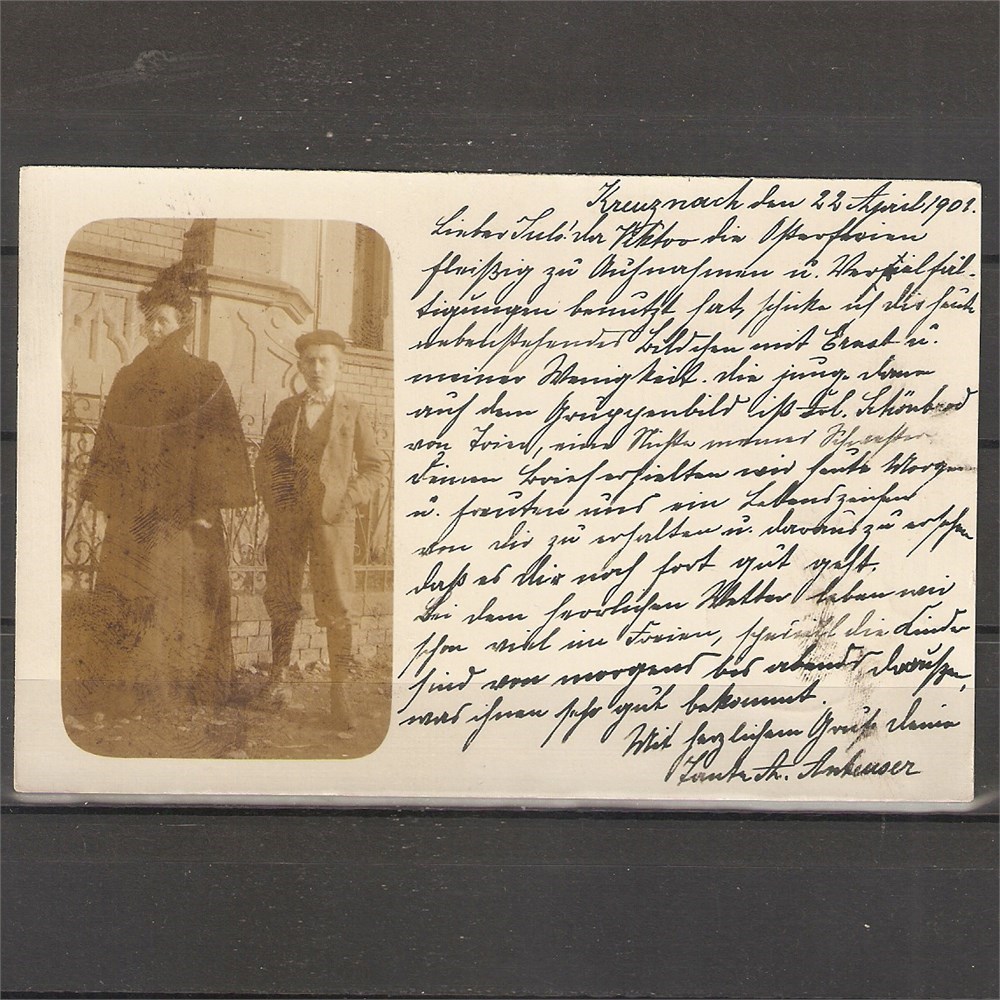 Kreuznach den 22 April 1901.
Lieber Jul! da Viktor die Osterferien
fleißig zu Aufnahmen u. Vervielfäl-
tigungen benutzt hat, schicke ich dir heute
nebenstehendes Bildchen mit Ernst u.
meiner Wenigkeit. Die junge Dame
auf dem Gruppenbild ist Frl. Schönbrod
von Trier, eine Nichte meiner Schwester.
Deinen Brief erhielten wir heute Morgen
u. freuten uns ein Lebenszeichen
von dir zu erhalten u. daraus zu ersehen
daß es dir noch fort gut geht.
Bei dem herrlichen Wetter leben wir
schon viel im Freien, speziell die Kinder
sind von morgens bis abends draußen,
was ihnen sehr gut bekommt.
Mit herzlichem Gruß deine
Tante A. Anheuser